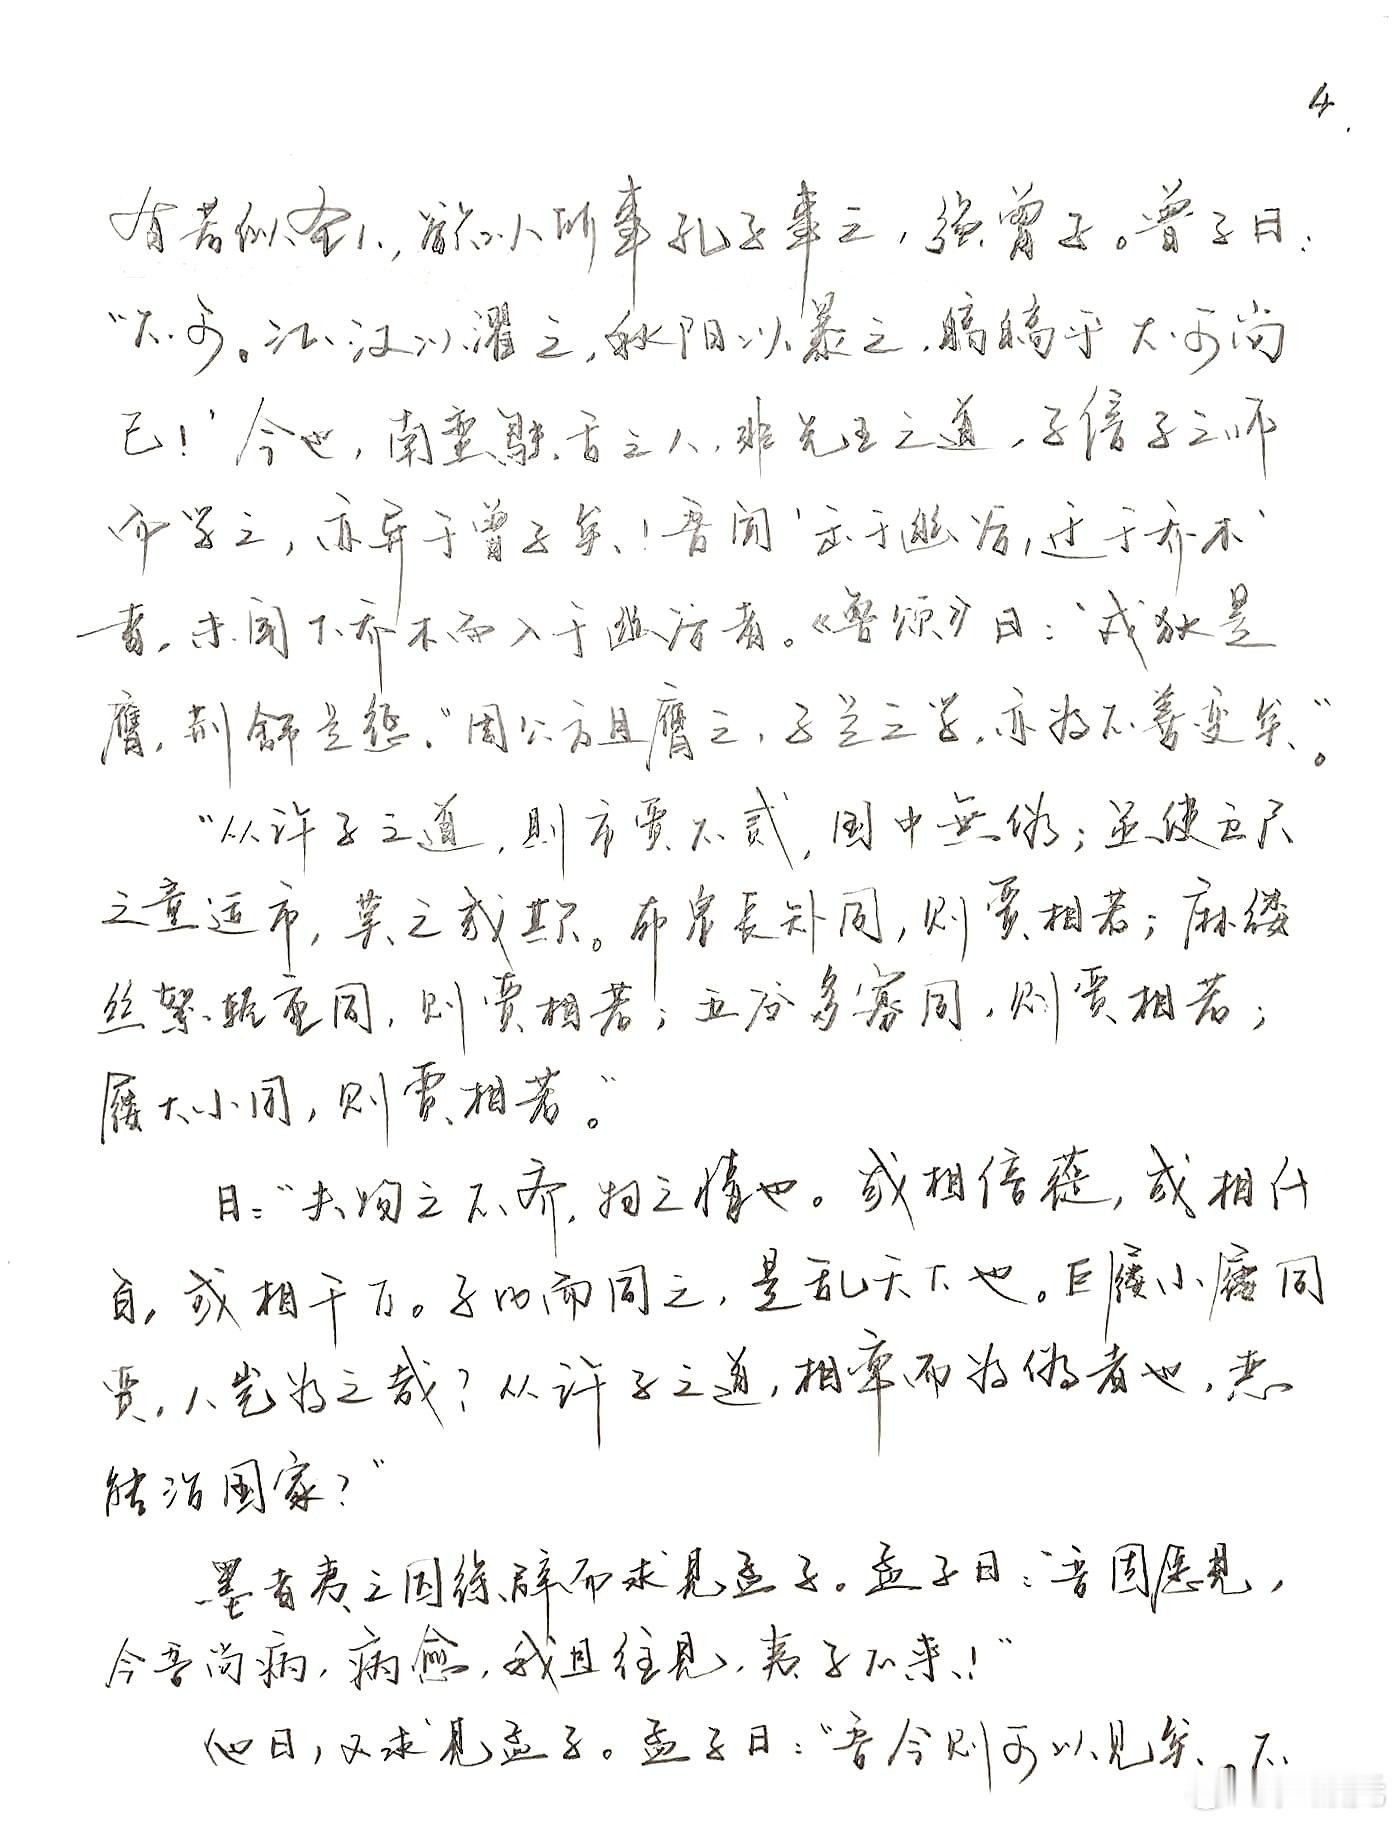 4
有若似圣人，欲以所事孔子事之，强曾子。曾子曰：
“不可。江汉以濯之，秋阳以暴之，皜皜乎不可尚
已！’今也，南蛮鴃舌之人，非先王之道，子倍子之师
而学之，亦异于曾子矣！吾闻‘出于幽谷，迁于乔木’
者，未闻下乔木而入于幽谷者。《鲁颂》曰：‘戎狄是
膺，荆舒是惩。’周公方且膺之，子是之学，亦为不善变矣”。
“从许子之道，则市贾不贰，国中無伪；虽使五尺
之童适市，莫之或欺。布帛長短同，则贾相若；麻缕
丝絮轻重同，则贾相若；五谷多寡同，则贾相若；
屦大小同，则贾相若”。
曰：“夫物之不齐，物之情也。或相倍蓰，或相什
百，或相千万。子比而同之，是乱天下也。巨屦小屦同
贾，人岂为之哉？从许子之道，相率而为伪者也，恶
能治国家？”
墨者夷之因徐辟而求见孟子。孟子曰：“吾固愿见，
今吾尚病，病愈，我且往见，夷子不来！”
他日，又求见孟子。孟子曰：“吾今则可以见矣。不